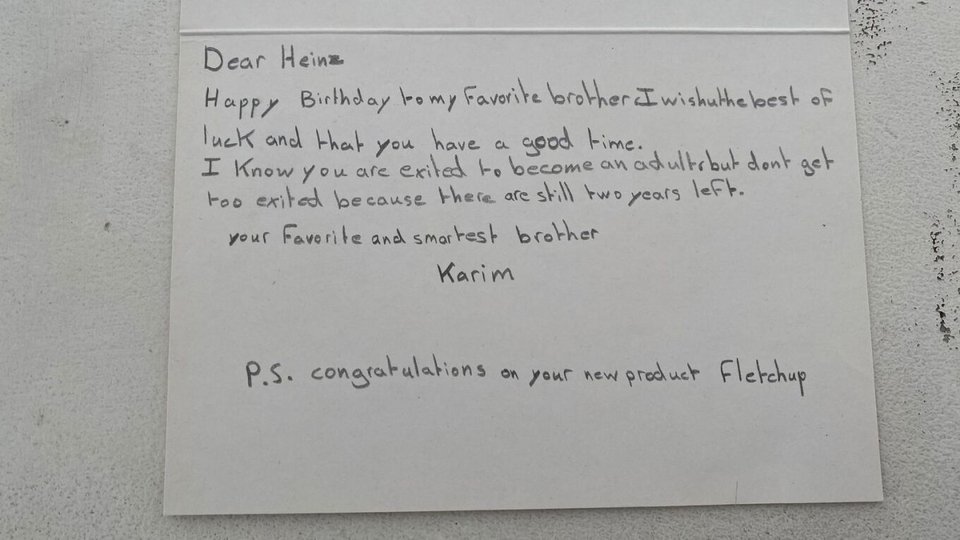 Dear Heinz
Happy Birthday to my Favorite brother I wish u the best of
luck and that you have a good time.
I Know you are exited to become an adult but dont get
too exited because there are still two years left.
your Favorite and smartest brother
Karim
P.S. congratulations on your new product Fletchup